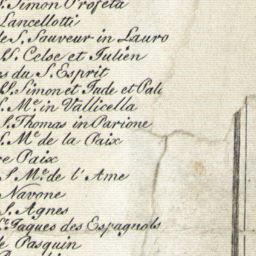 S. Simon Profeta
Lancellotti
de S. Sauveur in Lauro
SS. Celse et Julien
es du S. Esprit
SS. Simon et Jude et Pala
S. Me. in Vallicella
S. Thomas in Parione
S. Me. de la Paix
re Paix
S. Me. de l'Ame
Navone
S. Agnes
St. Jaques des Espagnols
de Pasquin